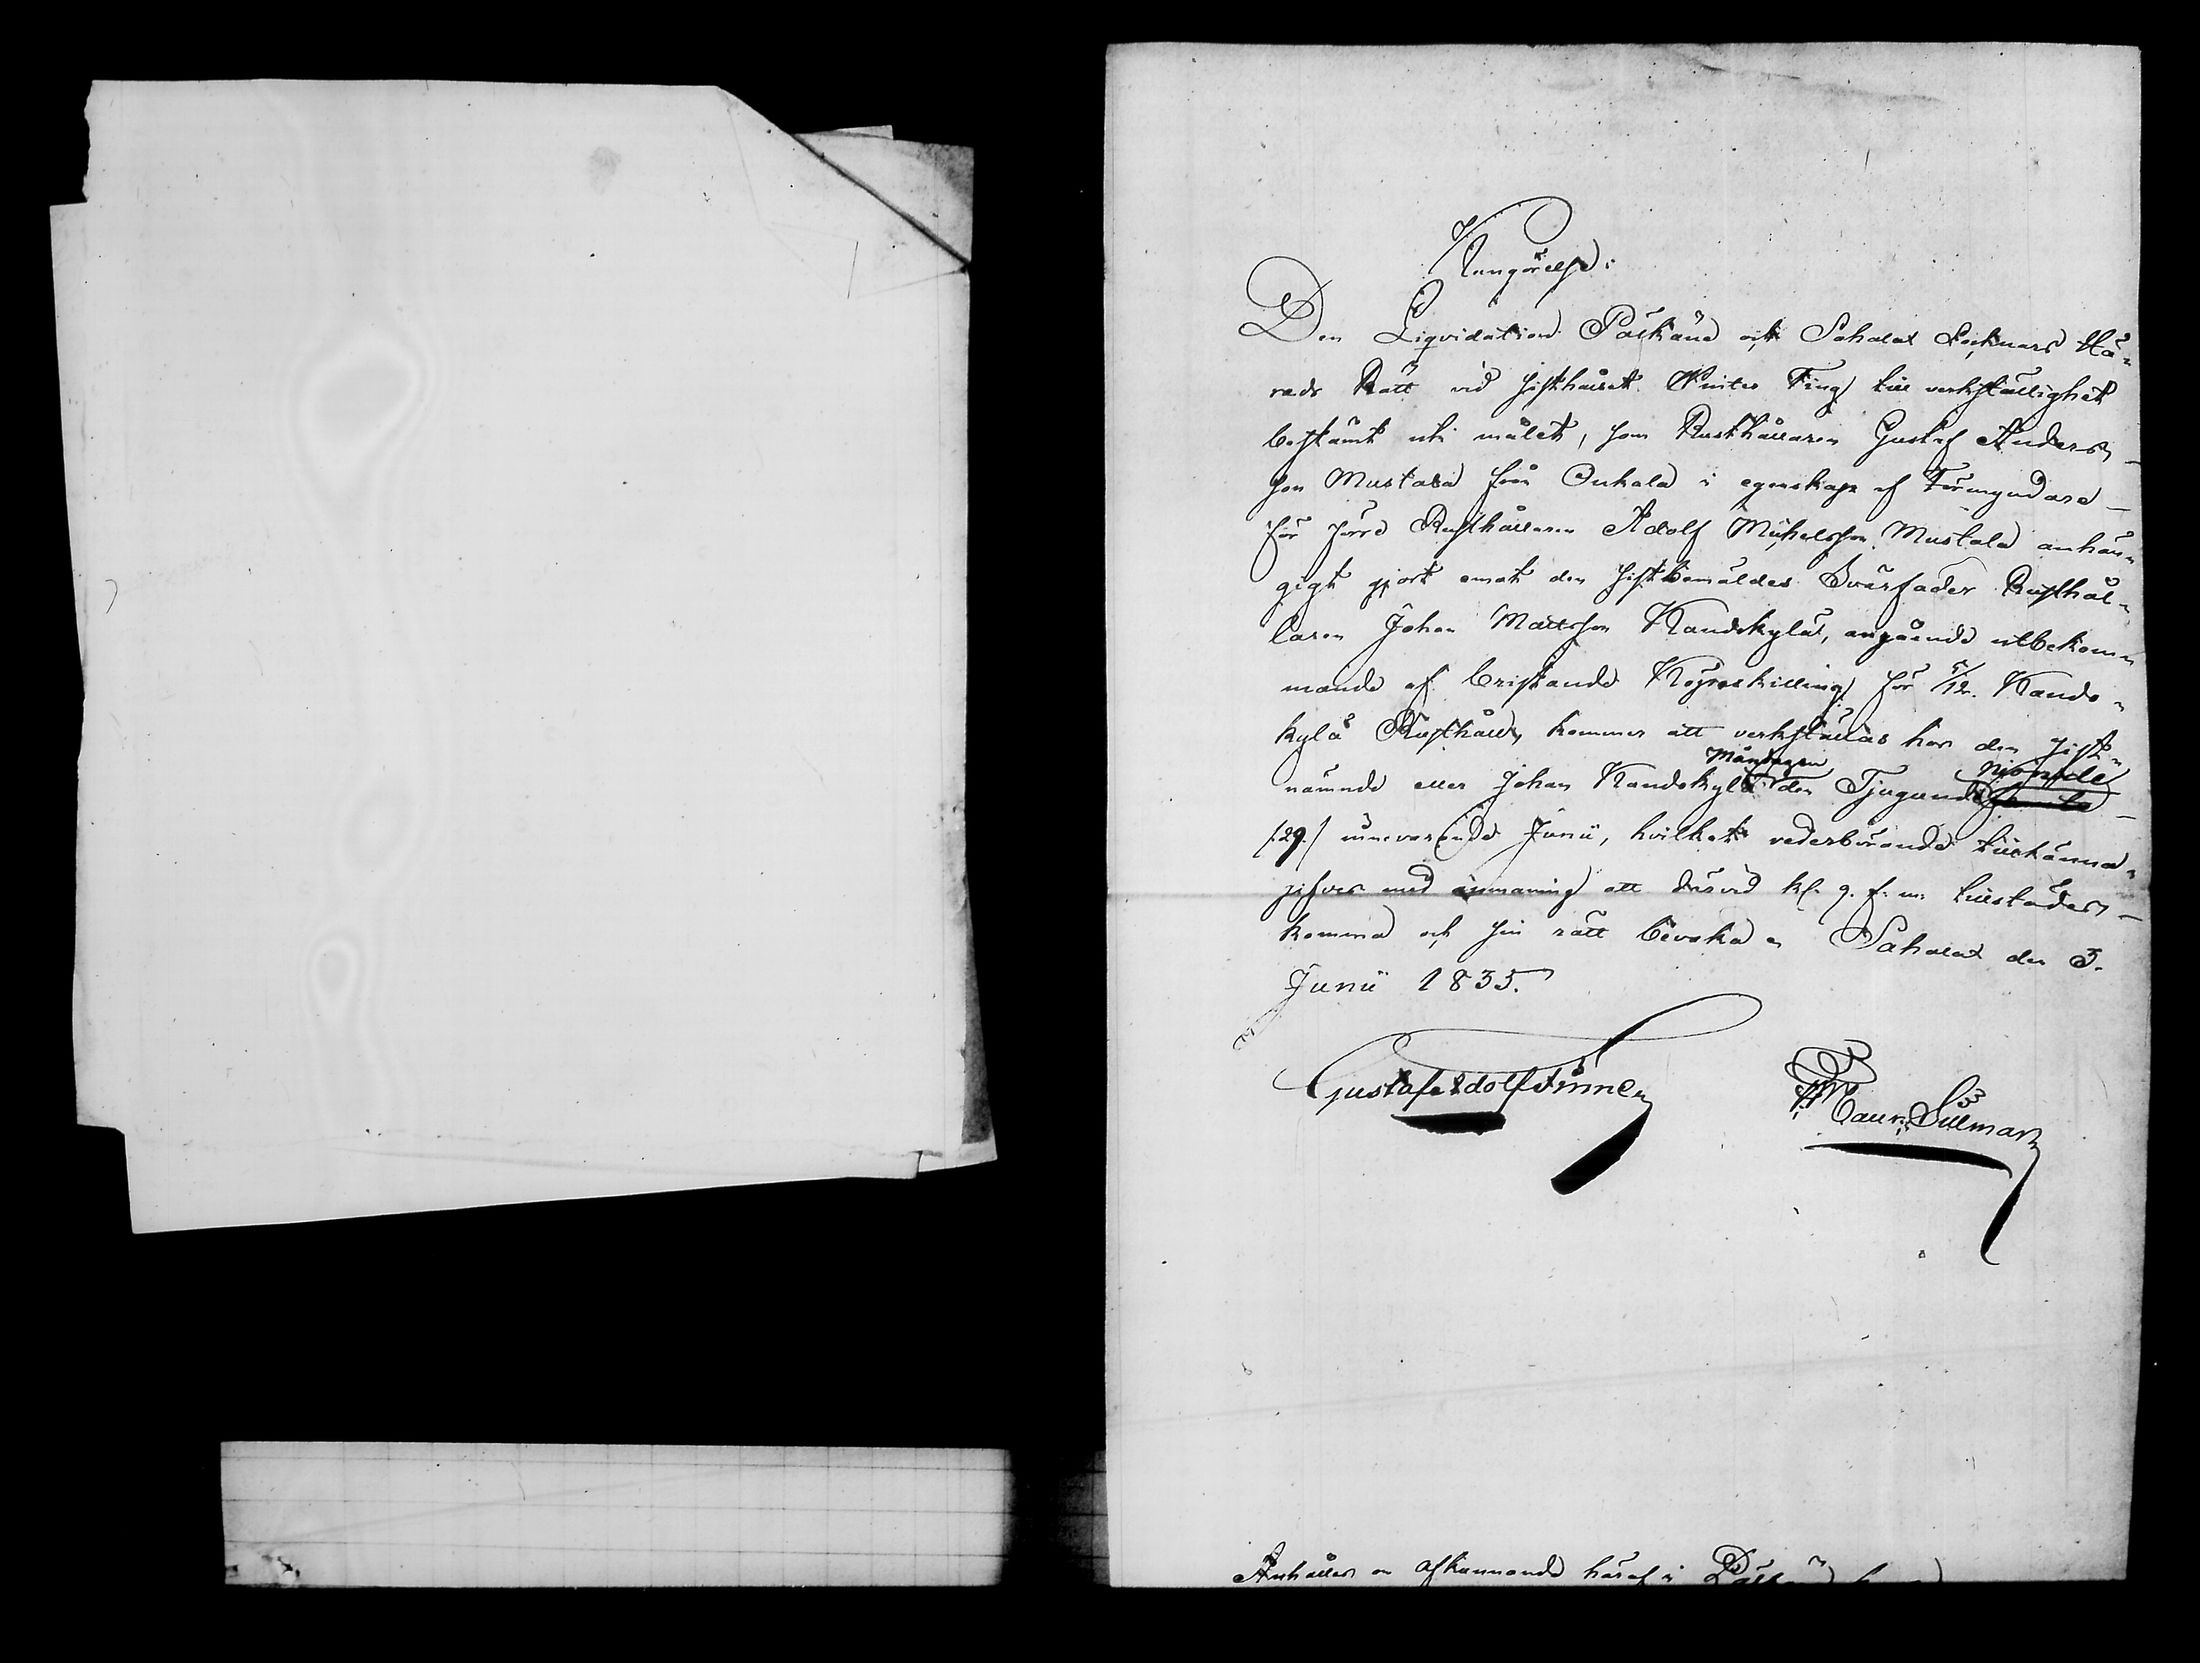 Kungörelse:
Den Liqvidation Pälkäne och Sahalax Socknars Hä-
rads Rätt vid sisthållet Winter Ting till verkställighet
bestämt uti målet, som Rusthållaren Gustaf Anders-
son Mustala från Onkala i egenskap af Förmyndare
för förre Rusthållaren Adolf Michelsson Mustala anhän-
gigt gjort emot den sistbemäldes Svärfader Rusthål-
laren Johan Mattsson Kandokylä, angående utbekom-
mande af bristande Köpeskilling för 5/12. Kando-
kylä Rusthåll, kommer att verkställas hos den sist-
nämnde eller Johan Kandokylä Måndagen den Tjugunde Nionde
/:29:/ innevarande Junii, hvilket vederbörande tillkänna-
gifves med anmaning att dervid kl. 9. f. m. tillstädes
komma och sin rätt bevaka. Sahalax den 3.
Junii 1835.
Gustaf Adolf
Sillman
Anhålles om afkunnande häraf i